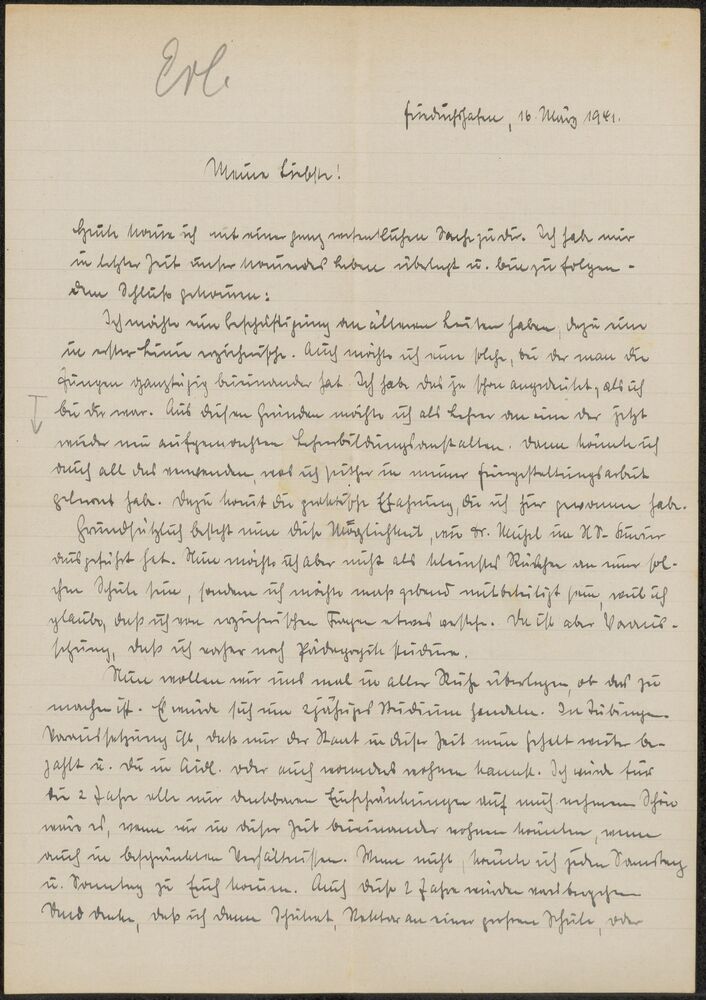 Erl.
Friedrichshafen, 16. März 1941.
Meine Liebste!
Heute komme ich mit einer ganz wesentlichen Sache zu dir. Ich habe mir
in letzter Zeit unser kommendes Leben überlegt u. bin zu folgen-
dem Schluß gekommen:
Ich möchte eine Beschäftigung an älteren Leuten haben, dazu eine
in erster Linie erzieherische. Auch möchte ich eine solche, bei der man die
Jungen ganztägig beieinander hat. Ich habe das ja schon angedeutet, als ich
bei dir war. Aus diesen Gründen möchte ich als Lehrer an eine der jetzt
wieder neu aufgemachten Lehrerbildungsanstalten. Dann könnte ich
auch all das verwenden, was ich seither in meiner
gelernt habe. Dazu kommt die praktische Erfahrung, die ich hier gewonnen habe.
Grundsätzlich besteht nun diese Möglichkeit, wie Dr. im NS-Kurier
ausgeführt hat. Nun möchte ich aber nicht als kleinstes Rädchen an einer sol-
chen Schule sein, sondern ich möchte maßgebend mitbeteiligt sein, weil ich
glaube, daß ich von erzieherischen Fragen etwas verstehe. Da ist aber Voraus-
setzung, daß ich vorher noch Pädagogik studiere.
Nun wollen wir uns mal in aller Ruhe überlegen, ob das zu
machen ist. Es würde sich um 2jähriges Studium handeln. In Tübingen.
Voraussetzung ist, daß mir der Staat in dieser Zeit mein Gehalt weiter be-
zahlt u. du in Aidl. oder auch woanders wohnen kannst. Ich würde für
die 2 Jahre alle nur denkbaren Einschränkungen auf mich nehmen. Schön
wäre es, wenn wir in dieser Zeit beieinander wohnen könnten, wenn
auch in beschränkten Verhältnissen. Wenn nicht, könnte ich jeden Samstag
u. Sonntag zu Euch kommen. Auch diese 2 Jahre würden vorbeigehen.
Und denke, daß ich dann Schulrat, Rektor an einer großen Schule, oder